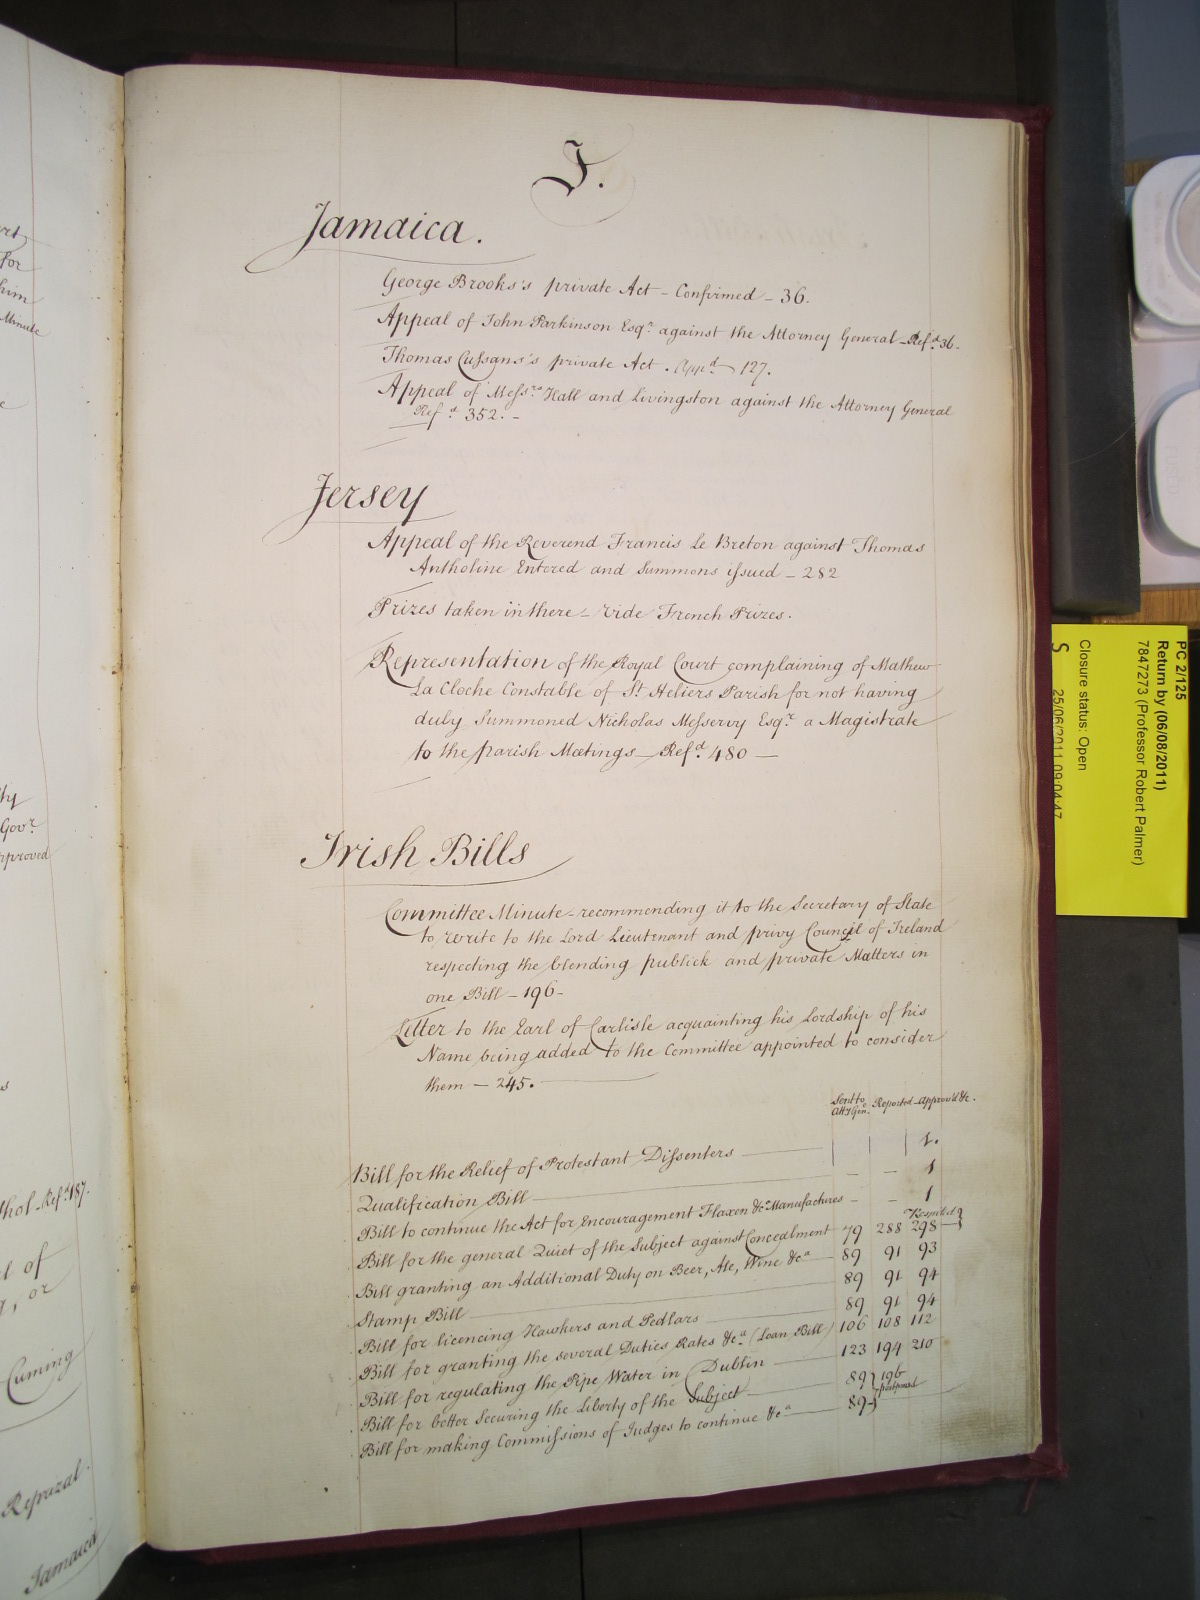 J.
Jamaica.
George Brooks's private Act - Confirmed - 36.
Appeal of John Parkinson Esqr. against the Attorney General - Refd. 36.
Thomas Cussans's private Act. Appd. 127.
Appeal of Messrs. Hall and Livingston against the Attorney General
Refd. 352. -
Jersey
Appeal of the Reverend Francis Le Breton against Thomas
Antholine Entered and Summons issued - 282
Prizes taken in there - vide French Prizes.
Representation of the Royal Court complaining of Mathew
La Cloche Constable of St Heliers Parish for not having
duly Summoned Nicholas Messervy Esqr. a Magistrate
to the parish Meetings - Refd. 480 -
Irish Bills
Committee Minute - recommending it to the Secretary of State
to write to the Lord Lieutenant and privy Council of Ireland
respecting the blending publick and private Matters in
one Bill - 196 -
Letter to the Earl of Carlisle acquainting his Lordship of his
Name being added to the Committee appointed to consider
them - 245.
Sent to Atty Gen. Reported - Approv'd &c.
Bill for the Relief of Protestant Dissenters 1.
Qualification Bill - - 1
Bill to continue the Act for Encouragement Flaxen &c Manufactures - - 1
Bill for the general Quiet of the Subject against Concealment 79 288 298 Respited
Bill granting an Additional Duty on Beer, Ale, Wine &ca 89 91 93
Stamp Bill 89 91 94
Bill for licencing Hawkers and Pedlars 89 91 94
Bill for granting the several Duties Rates &ca (Loan Bill) 106 108 112
Bill for regulating the Pipe Water in Dublin 123 194 210
Bill for better Securing the Liberty of the Subject 89 } 196
Bill for making Commissions of Judges to continue &ca 89 } postponed
for
him
Minute
ty
Govr.
approved
Refd. 187.
of
or
Cuming
Reprizal.
Jamaica
PC 2/125
Return by (06/08/2011)
7847273 (Professor Robert Palmer)
Closure status: Open
S 25/06/2011 09:04:47